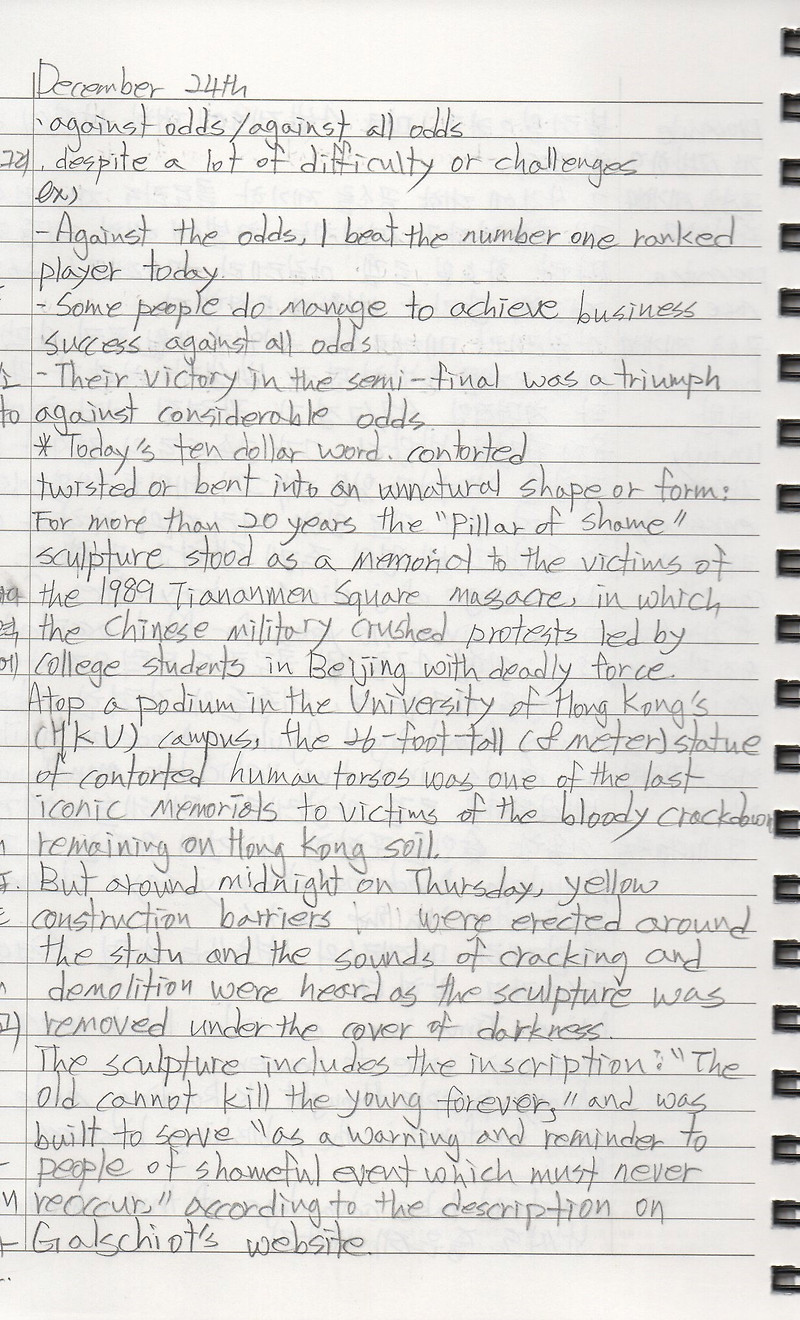 December 24th
· against odds/against all odds
. despite a lot of difficulty or challenges
ex)
- Against the odds, I beat the number one ranked
player today.
- Some people do manage to achieve business
success against all odds
- Their victory in the semi-final was a triumph
to against considerable odds.
* Today's ten dollar word. contorted
twisted or bent into an unnatural shape or form:
For more than 20 years the "Pillar of Shame"
sculpture stood as a memorial to the victims of
the 1989 Tiananmen Square massacre, in which
the Chinese military crushed protests led by
college students in Beijing with deadly force.
Atop a podium in the University of Hong Kong's
(HKU) campus, the 26-foot-tall (8 meter) statue
of contorted human torsos was one of the last
iconic memorials to victims of the bloody crackdown
remaining on Hong Kong soil.
But around midnight on Thursday, yellow
construction barriers were erected around
the statu and the sounds of cracking and
demolition were heard as the sculpture was
removed under the cover of darkness.
The sculpture includes the inscription: "The
old cannot kill the young forever," and was
built to serve "as a warning and reminder to
people of shameful event which must never
reoccur," according to the description on
Galschiot's website.